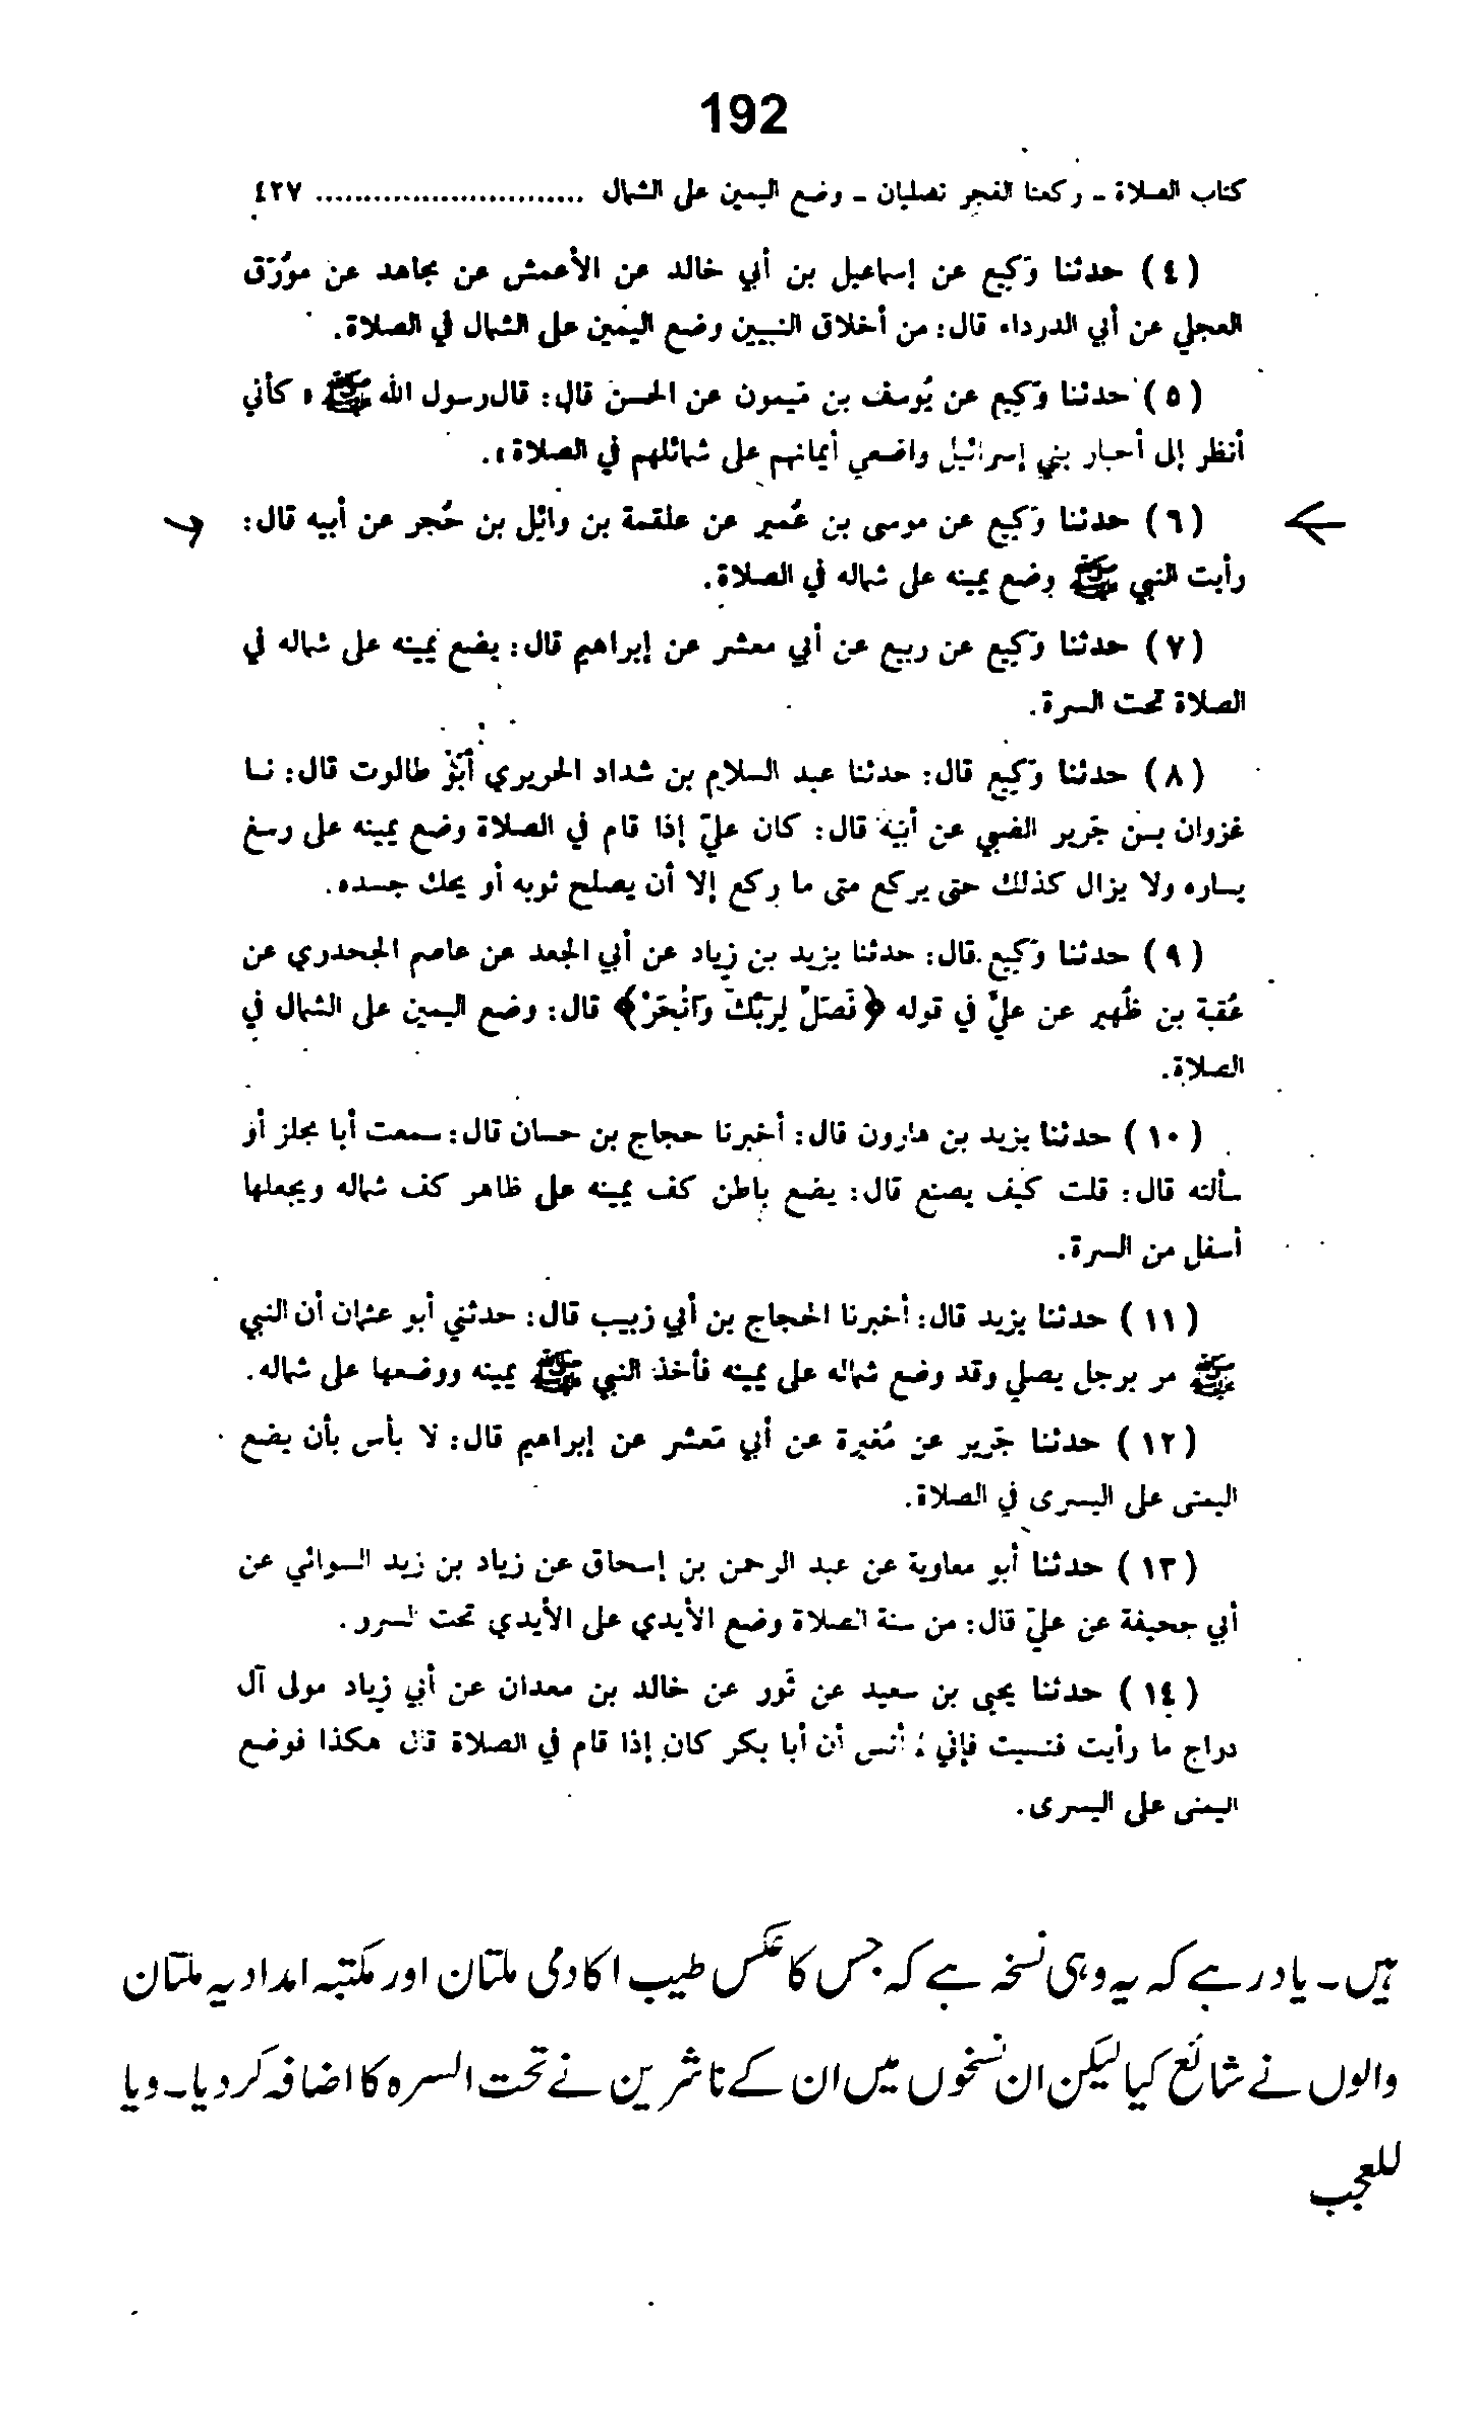 192
كتاب الصلاة - ركعتا الفجر تصليان - وضع اليمين على الشمال ............................. ٤٢٧
(٤) حدثنا وَكيع عن إسماعيل بن أبي خالد عن الأعمش عن مجاهد عن مؤرّق
العجلي عن أبي الدرداء قال: من أخلاق النبيين وضع اليمين على الشمال في الصلاة.
(٥) حدثنا وَكيع عن يُوسف بن مَيمون عن الحسن قال: قال رسول الله ﷺ «كأني
أنظر إلى أحبار بني إسرائيل واضعي أيمانهم على شمائلهم في الصلاة».
(٦) حدثنا وَكيع عن موسى بن عُمير عن علقمة بن وائل بن حُجر عن أبيه قال:
رأيت النبي ﷺ وضع يمينه على شماله في الصلاة.
(٧) حدثنا وَكيع عن ربيع عن أبي معشر عن إبراهيم قال: يضع يمينه على شماله في
الصلاة تحت السرة.
(٨) حدثنا وَكيع قال: حدثنا عبد السلام بن شداد الحريري أبُو طالوت قال: نـا
غزوان بـن جَرير الضبي عن أبيه قال: كان عليّ إذا قام في الصلاة وضع يمينه على رسغ
يساره ولا يزال كذلك حتى يركع متى ما ركع إلا أن يصلح ثوبه أو يحك جسده.
(٩) حدثنا وَكيع قال: حدثنا يزيد بن زياد عن أبي الجعد عن عاصم الجحدري عن
عُقبة بن ظُهير عن عليّ في قوله ﴿فَصَلِّ لِرَبِّكَ وَانْحَرْ﴾ قال: وضع اليمين على الشمال في
الصلاة.
(١٠) حدثنا يزيد بن هارون قال: أخبرنا حجاج بن حسان قال: سمعت أبا مجلز أو
سألته قال: قلت كيف يصنع قال: يضع باطن كف يمينه على ظاهر كف شماله ويجعلها
أسفل من السرة.
(١١) حدثنا يزيد قال: أخبرنا الحجاج بن أبي زبيب قال: حدثني أبو عثمان أن النبي
ﷺ مر برجل يصلي وقد وضع شماله على يمينه فأخذ النبي ﷺ يمينه ووضعها على شماله.
(١٢) حدثنا جَرير عن مُغيرة عن أبي مَعشر عن إبراهيم قال: لا بأس بأن يضع
اليمنى على اليسرى في الصلاة.
(١٣) حدثنا أبو معاوية عن عبد الرحمن بن إسحاق عن زياد بن زيد السوائي عن
أبي جحيفة عن عليّ قال: من سنة الصلاة وضع الأيدي على الأيدي تحت السرر.
(١٤) حدثنا يحيى بن سعيد عن ثَور عن خالد بن معدان عن أبي زياد مولى آل
دراج ما رأيت فنسيت فإني أنس أن أبا بكر كان إذا قام في الصلاة قال هكذا فوضع
اليمنى على اليسرى.
ہیں۔ یاد رہے کہ یہ وہی نسخہ ہے کہ جس کا عکس طیب اکادمی ملتان اور مکتبہ امدادیہ ملتان
والوں نے شائع کیا لیکن ان نسخوں میں ان کے ناشرین نے تحت السرہ کا اضافہ کر دیا۔ ویا
للعجب